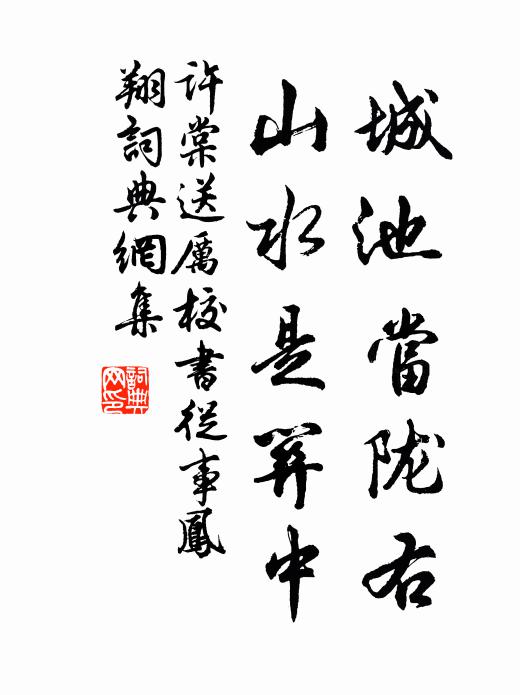 城池當陇右
山水是關中
許棠送厲校書從事鳳
翔詞典網集
詞典
网印